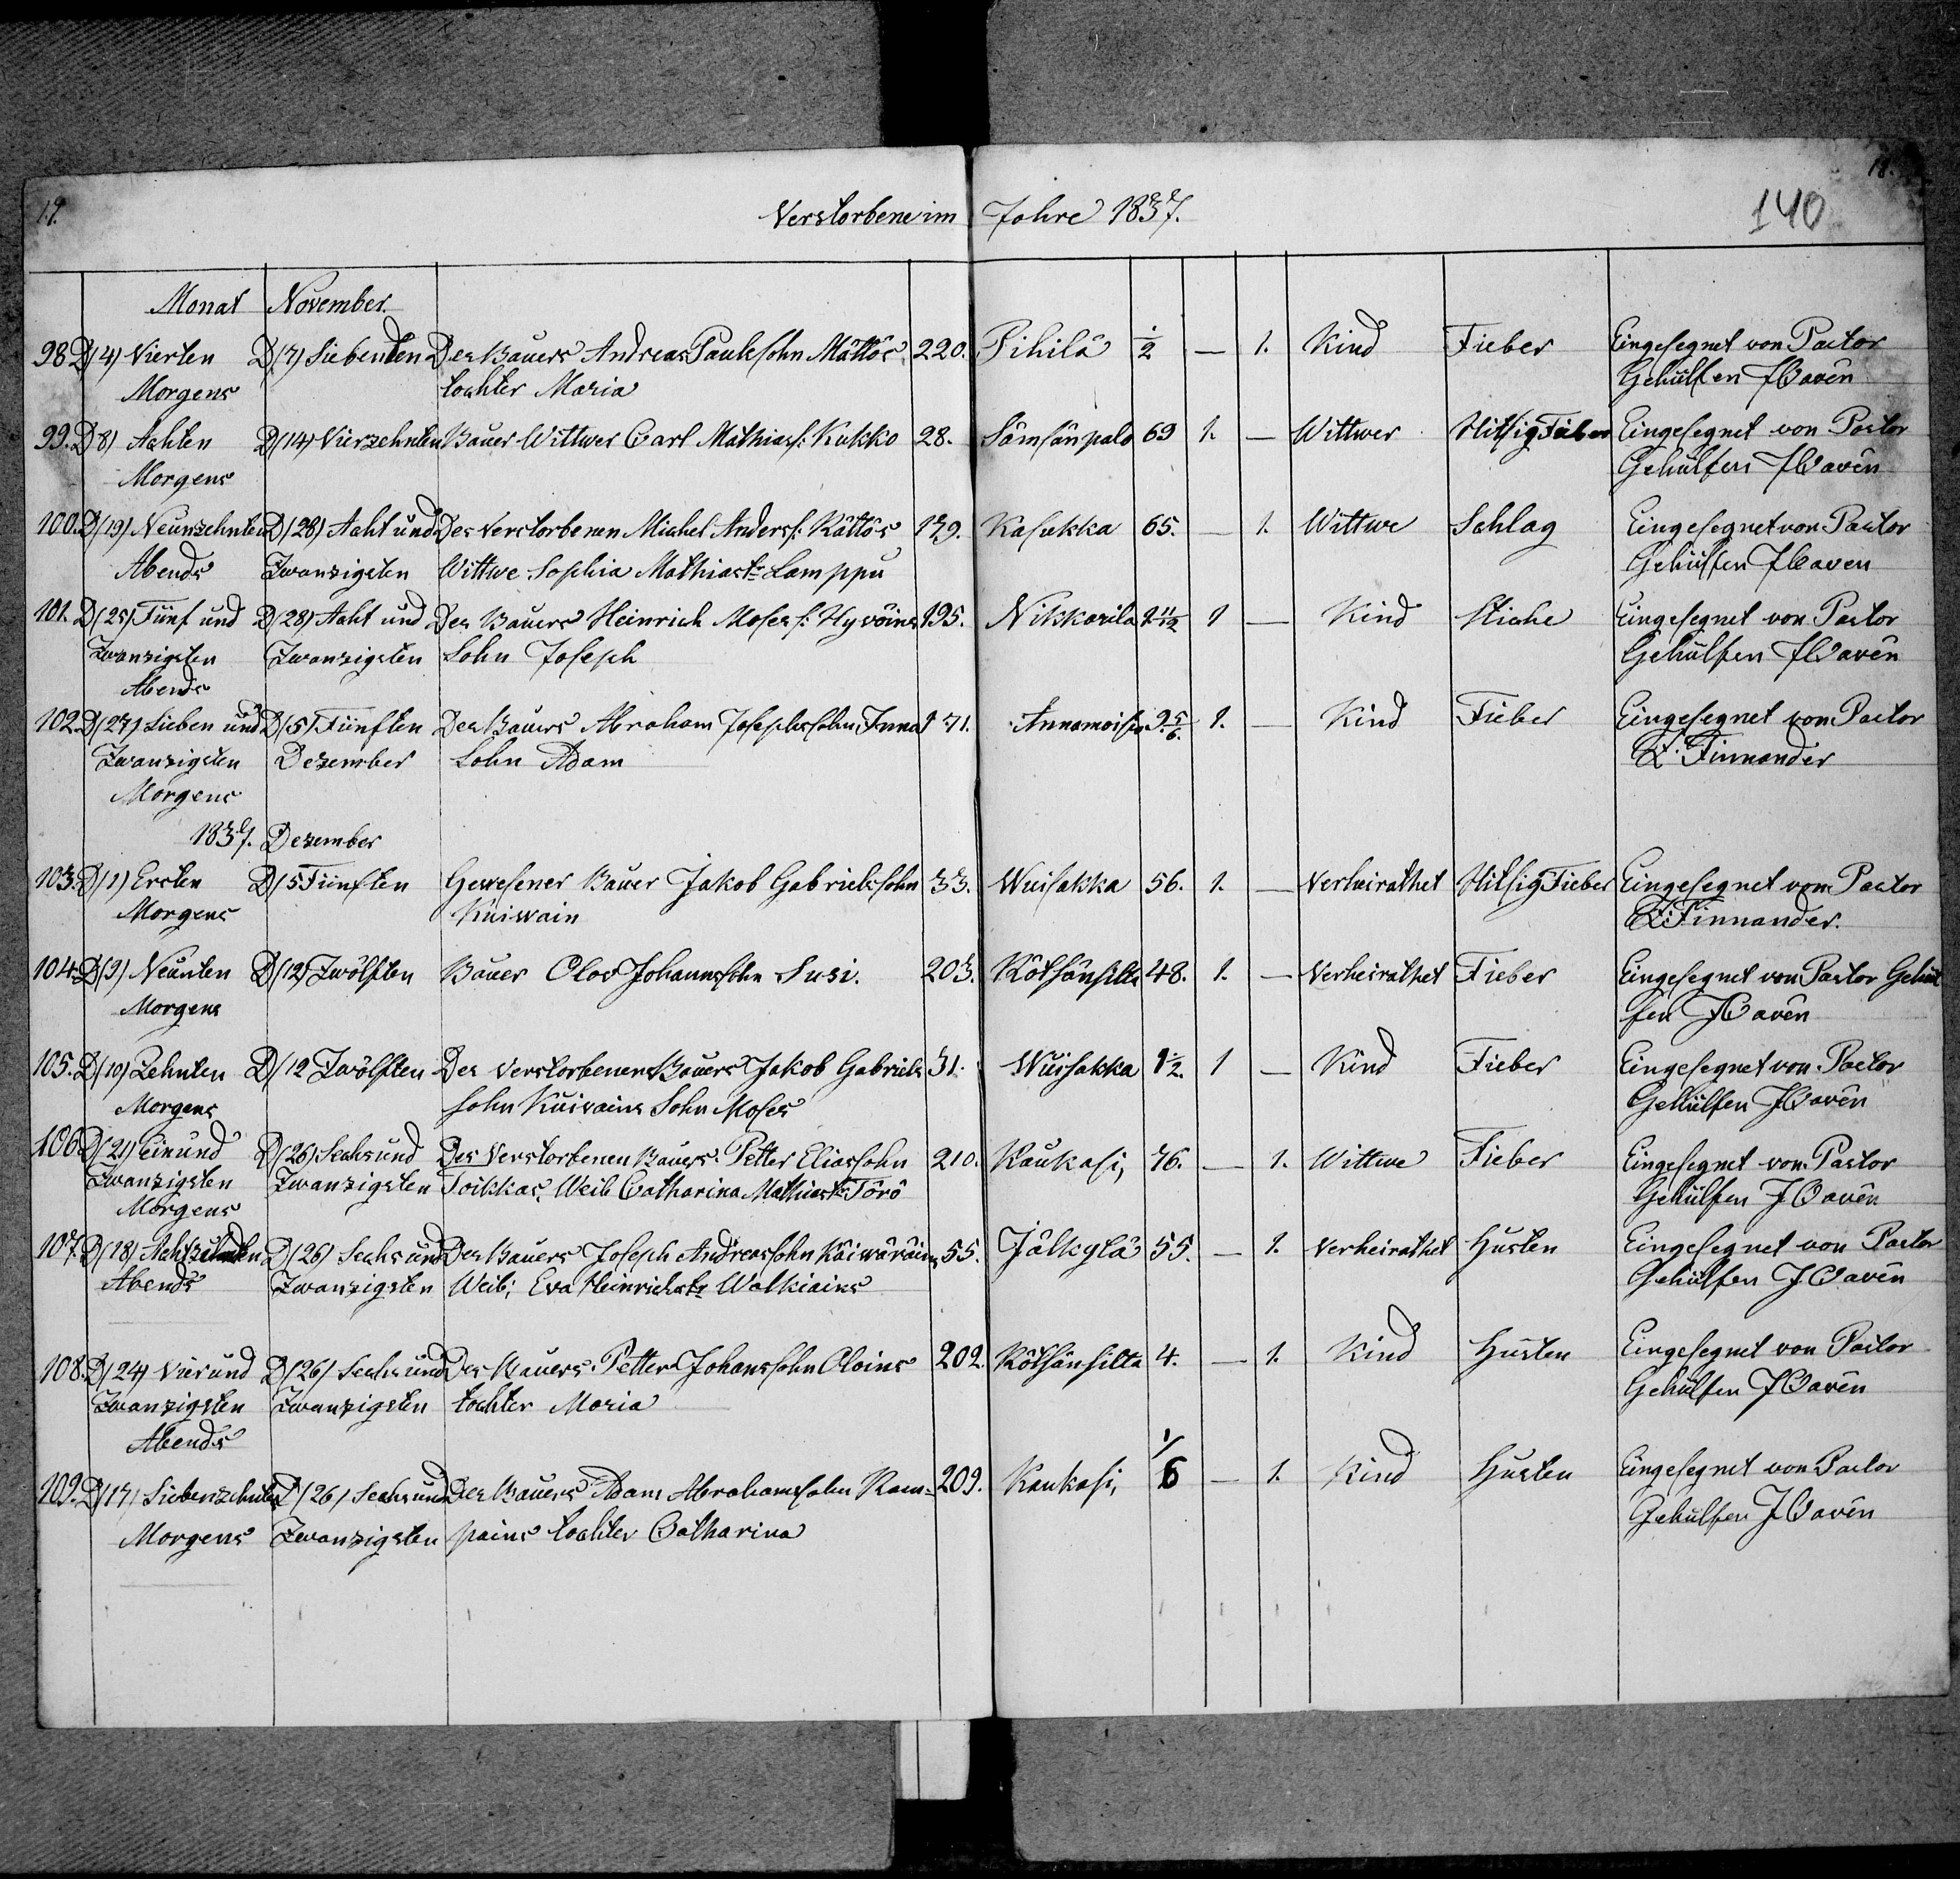 17. 18.
Verstorbene im Jahre 1837. 140
Monat November.
98 D (4) Vierten D (7) Siebenten Des Bauers Andreas Paulssohn Mättös 220. Pihilä 1/2 — 1. Kind Fieber Eingesegnet von Pastor
Morgens tochter Maria Gehülfen JCavén
99. D 8) Achten D (14) Vierzehnten Bauer Wittwer Carl Mathiass: Kukko 28. Sämsänpalo 69 1. — Wittwer Hitsig Fieber Eingesegnet von Pastor
Morgens Gehülfen JCavén
100. D (19) Neunzehnten D (28) Acht und Des Verstorbenen Michel Anderss: Rättös 179. Kasukka 65. — 1. Wittwe Schlag Eingesegnet von Pastor
Abends Zwanzigsten Wittwe Sophia Mathiastr Lamppu Gehülfen JCaven
101. D (25) Fünf und D (28) Acht und Des Bauers Heinrich Moses s: Hyvöins 195. Nikkarila 2 11/12 1 — Kind Stiche Eingesegnet von Pastor
Zwanzigsten Zwanzigsten Sohn Joseph Gehülfen JCavén
Abends
102. D (27) Sieben und D (5) Fünften Des Bauers Abraham Josephssohn Inna 171. Annamoisio 9 5/6. 1. — Kind Fieber Eingesegnet von Pastor
Zwanzigsten Dezember Sohn Adam Z. Finnander
Morgens
1837. Dezember
103. D (1) Ersten D (5 Fünften Gewesener Bauer Jakob Gabrielssohn 33. Wuisakka 56. 1. — Verheirathet Hitsig Fieber Eingesegnet von Pastor
Morgens Kuiwain Z. Finnander.
104. D (9) Neunten D (12) Zwölften Bauer Olov Johannssohn Susi. 203. Kötsänsilta 48. 1. — Verheirathet Fieber Eingesegnet von Pastor Gehül
Morgens fen JCavén
105. D (10) Zehnten D (12 Zwölften Des Verstorbenen Bauers Jakob Gabriels 31. Wuisakka 1 1/2. 1 — Kind Fieber Eingesegnet von Pastor
Morgens sohn Kuivains Sohn Moses Gehülfen JCavén
106 D (21) Ein und D (26) Sechs und Des Verstorbenen Bauers Petter Eliassohn 210. Kaukasi, 76. — 1. Wittwe Fieber Eingesegnet von Pastor
Zwanzigsten Zwanzigsten Toikkas, Weib Catharina Mathiastr Törö Gehülfen JCavén
Morgens
107. D (18) Achtzehnten D (26) Sechs und Des Bauers Joseph Andreassohn Käiwäräins 55. Jälkylä 55. — 1. Verheirathet Husten Eingesegnet von Pastor
Abends Zwanzigsten Weib, Eva Heinrichstr Walkiains Gehülfen JCavén
108. D (24) Vier und D (26) Sechs und Des Bauers Petter Johanssohn Oloins 202. Kötsänsilta 4. — 1. Kind Husten Eingesegnet von Pastor
Zwanzigsten Zwanzigsten tochter Maria Gehülfen JCavén
Abends
109. D (17) Siebenzehnten D (26) Sechs und Des Bauers Adam Abrahamssohn Ram- 209. Kaukasi, 1/6 — 1. Kind Husten Eingesegnet von Pastor
Morgens Zwanzigsten pains tochter Catharina Gehülfen JCavén